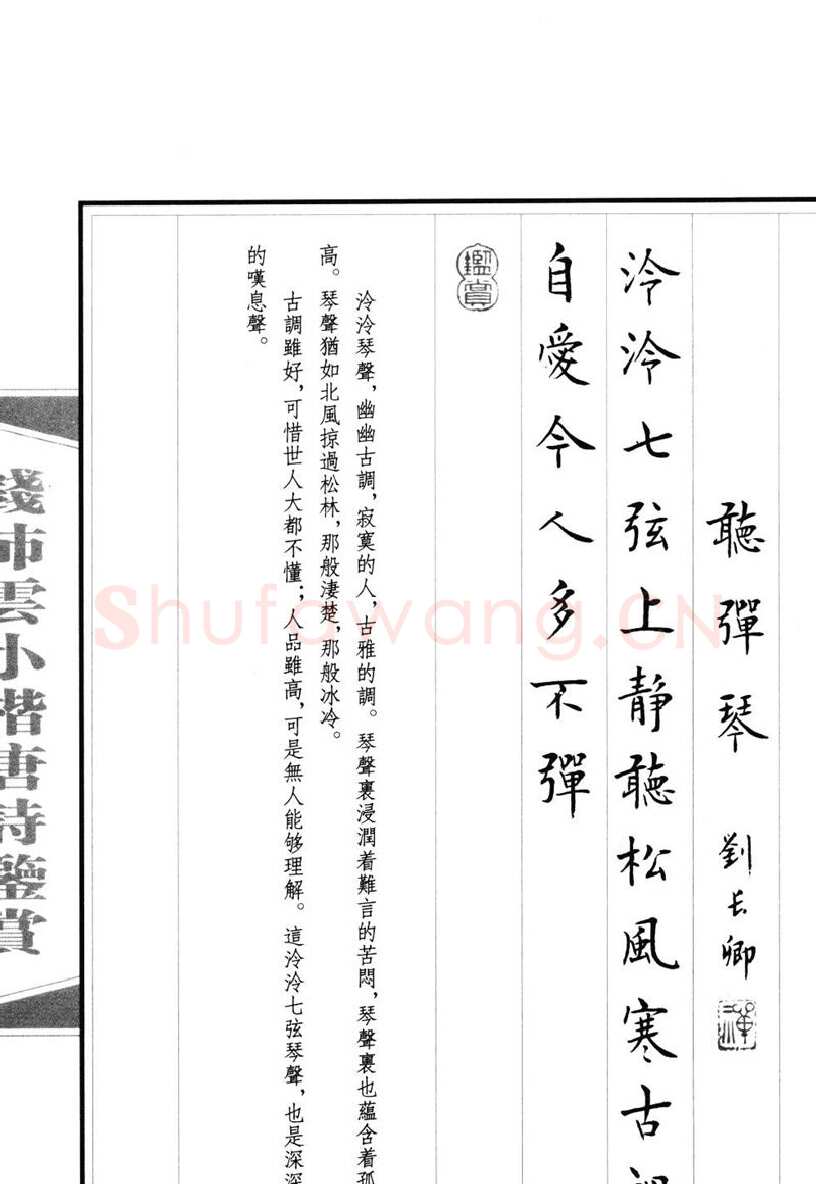 聽彈琴 劉長卿
泠泠七弦上靜聽松風寒古
自愛今人多不彈
鑑賞
泠泠琴聲，幽幽古調，寂寞的人，古雅的調。琴聲裏浸潤着難言的苦悶，琴聲裏也蘊含着孤
高。琴聲猶如北風掠過松林，那般淒楚，那般冰冷。
古調雖好，可惜世人大都不懂；人品雖高，可是無人能够理解。這泠泠七弦琴聲，也是深深
的嘆息聲。
錢沛雲小楷唐詩鑒賞
Shufawang.CN